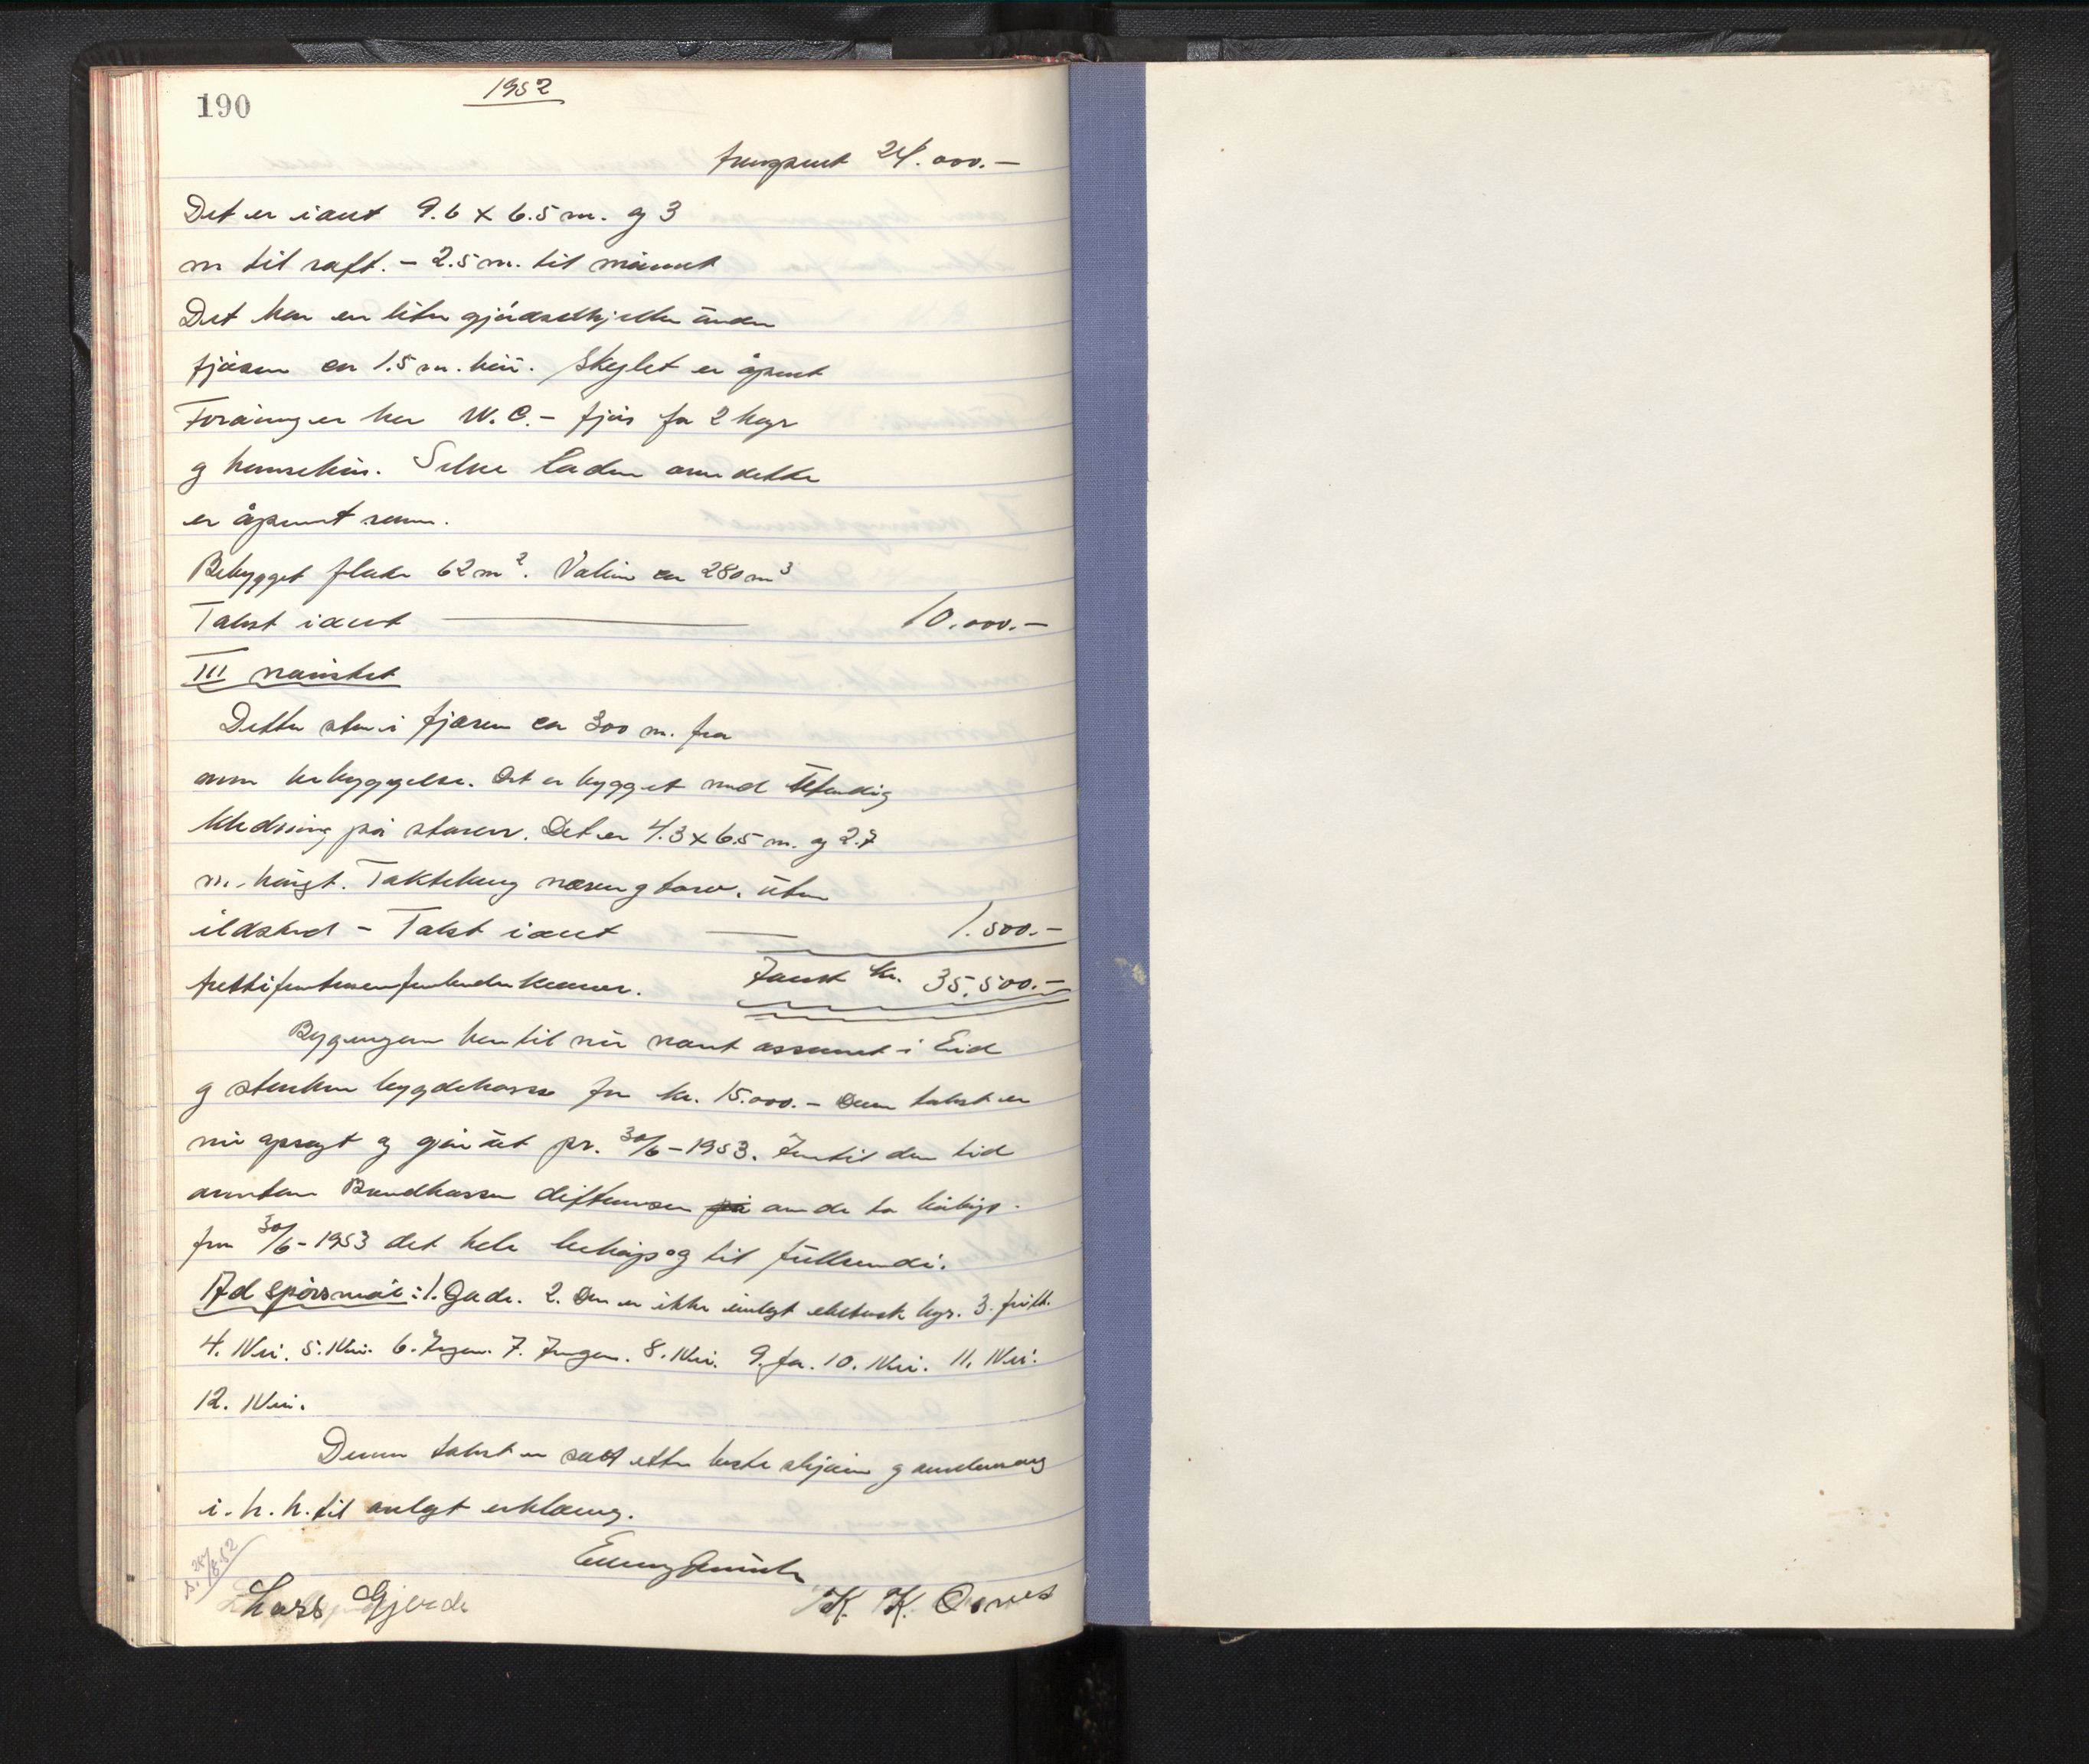 190
1952
fremgaaet 24.000.-
Det er i alt 9.6 x 6.5 m. og 3
m til raft. - 2.5 m. til mønet
Det har en liten gjødselkjeller under
fjøsen ca 1.5 m. høi. Skeglet er åpent
Foruning er her W.C. - fjøs for 2 kyr
og hønsehus. Selve laden over dette
er åpent rum.
Bebygget flate 62 m². Volum ca 280 m³
Takst i alt 10.000.-
III naustet
Dette står i fjæren ca 300 m. fra
annen bebyggelse. Det er bygget med utvendig
kledning på staver. Det er 4.3 x 6.5 m. og 2.7
m. høigt. Taktekking never og torv. uten
ildsted - Takst i alt 1.500.-
trettifemtusenfemhundrekroner. Ialt kr. 35.500.-
Bygningene har til nu vært assurert i Eid
og bygdekasse for kr. 15.000.- Denne takst er
nu opsagt og går ut pr. 30/6-1953. Inntil den tid
overtar Brandkassen differansen på om de to beløp.
fra 30/6-1953 det hele beløp og til fullverdi.
Ad spørsmål: 1. Gode. 2. Den er ikke innlagt elektrisk lys. 3. fritt.
4. Nei. 5. Nei. 6. Ingen. 7. Ingen. 8. Nei. 9. Ja. 10. Nei. 11. Nei.
12. Nei.
Denne takst er satt etter beste skjønn og overbevisning
i. h. h. til avlagt erklæring.
s. 28/8-52
Lars Gjerde
K. K. Osnes